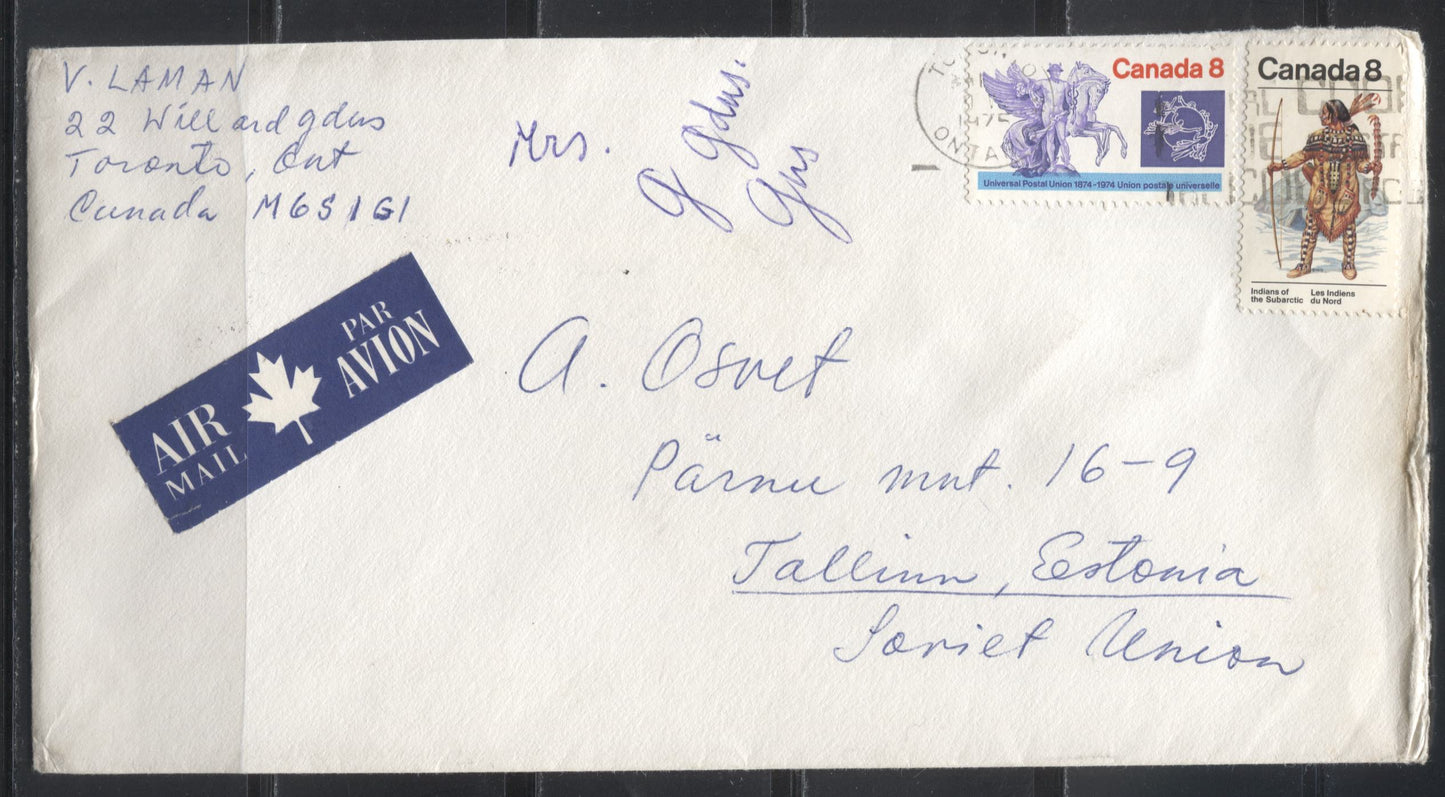 V. LAMAN
22 Willard gdns
Toronto, Ont
Canada M6S 1G1
Mrs.
g gdns.
gns
TO
1975
ONTA
Canada 8
Universal Postal Union 1874-1974 Union postale universelle
Canada 8
Indians of the Subarctic
Les Indiens du Nord
AIR MAIL
PAR AVION
A. Osvet
Pärnu mnt. 16-9
Tallinn, Estonia
Soviet Union